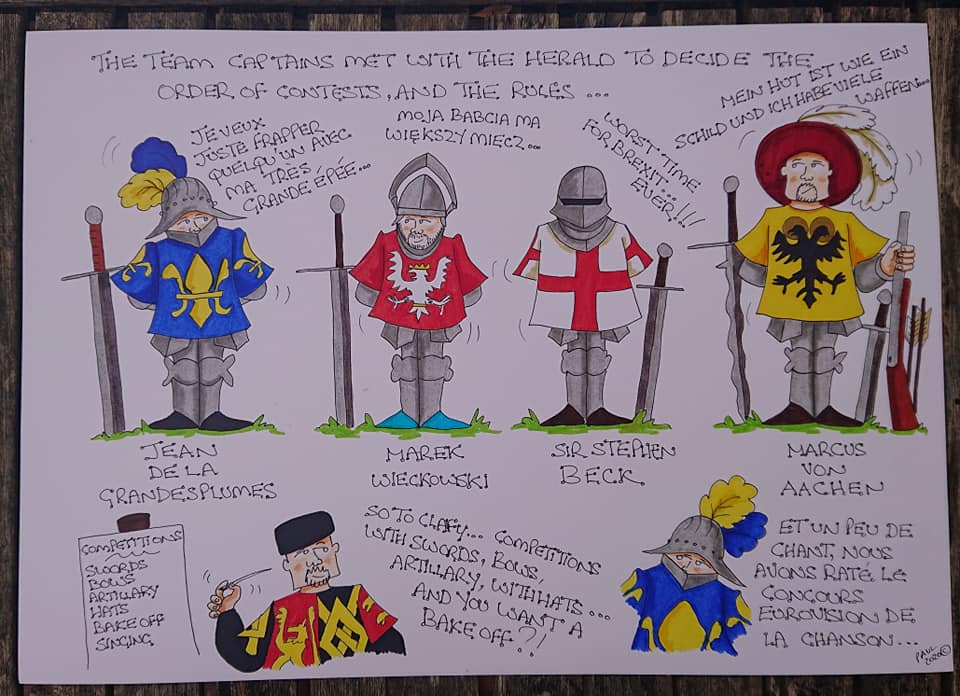 THE TEAM CAPTAINS MET WITH THE HERALD TO DECIDE THE
ORDER OF CONTESTS, AND THE RULES ...
JE VEUX
JUSTE FRAPPER
QUELQU'UN AVEC
MA TRÈS
GRANDE ÉPÉE...
MOJA BABCIA MA
WIĘKSZY MIECZ...
WORST TIME
FOR BREXIT...
EVER!!!!
MEIN HUT IST WIE EIN
SCHILD UND ICH HABE VIELE
WAFFEN...
JEAN
DE LA
GRANDESPLUMES
MAREK
WIECKOWSKI
SIR STEPHEN
BECK
MARCUS
VON
AACHEN
COMPETITIONS
SWORDS
BOWS
ARTILLARY
HATS
BAKE OFF
SINGING
SO TO CLAFY... COMPETITIONS
WITH SWORDS, BOWS,
ARTILLARY, WITH HATS...
AND YOU WANT A
BAKE OFF?!
ET UN PEU DE
CHANT, NOUS
AVONS RATÉ LE
CONCOURS
EUROVISION DE
LA CHANSON...
PAUL
2020©